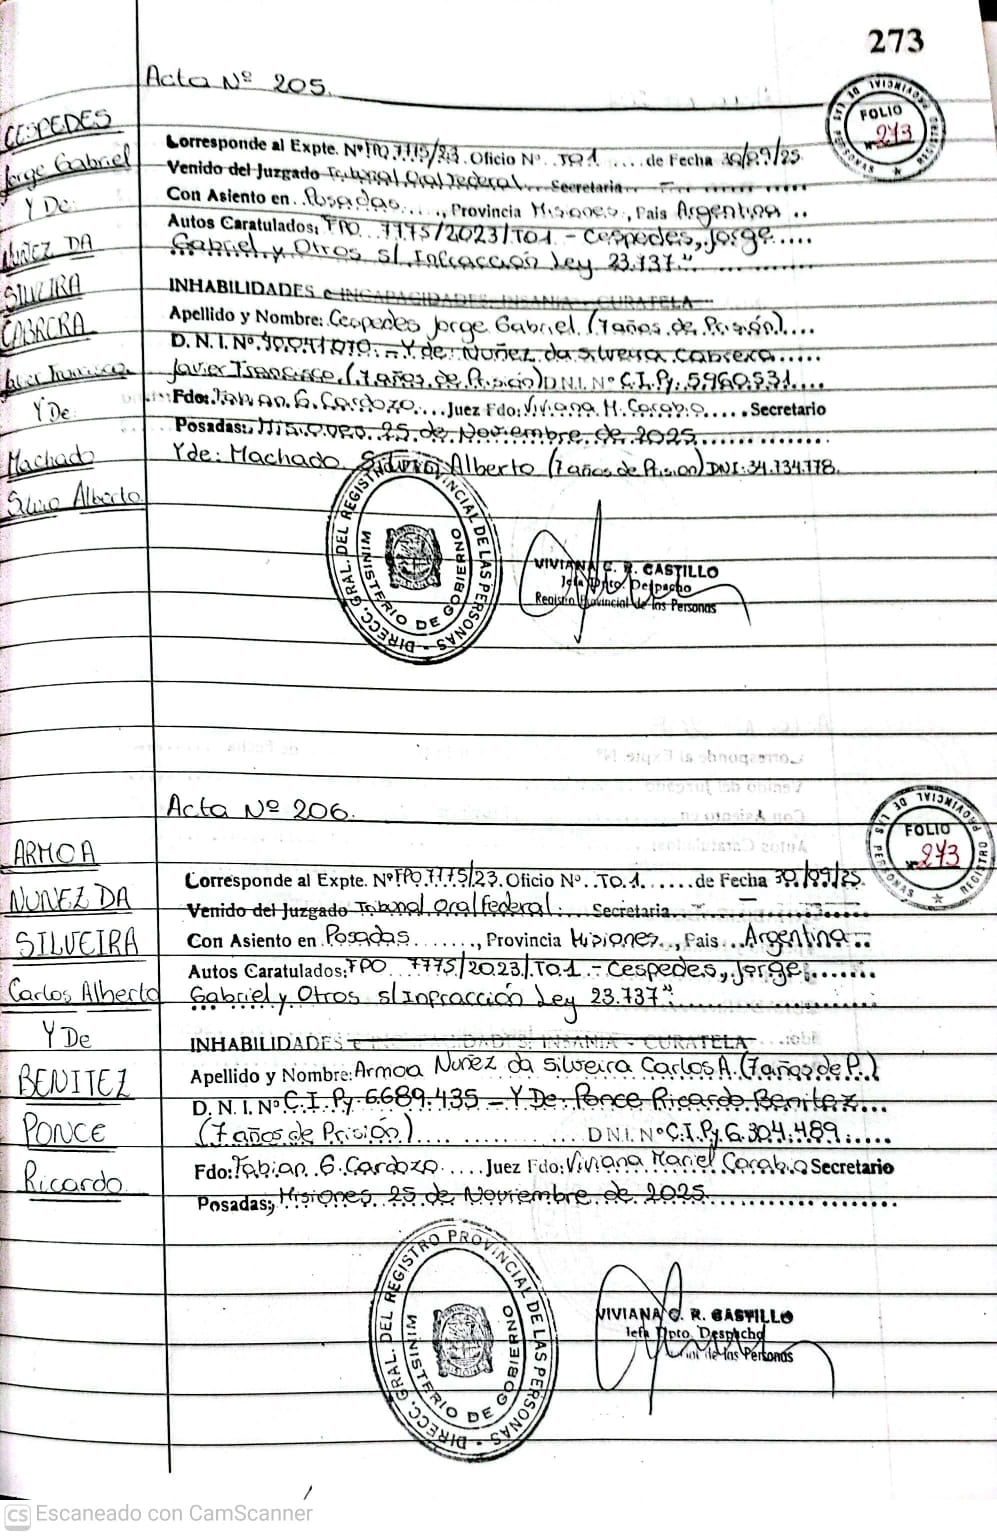 273
Acta Nº 205.
FOLIO
Nº 273
REGISTRO PROVINCIAL DE LAS PERSONAS
CESPEDES
Jorge Gabriel
Y De
NUÑEZ DA
SILVEIRA
CABRERA
Javier Francisco
Y De
Machado
Silvio Alberto
Corresponde al Expte. Nº FPO 7775/23. Oficio Nº..TO1.....de Fecha 30/09/25
Venido del Juzgado Tribunal Oral Federal... Secretaria..
Con Asiento en .Posadas...., Provincia Misiones., Pais Argentina ..
Autos Caratulados: FPO 7775/2023/TO1 - Cespedes, Jorge....
Gabriel y Otros s/ Infracción Ley 23.737."
INHABILIDADES e INCAPACIDADES: INSANIA - CURATELA
Apellido y Nombre: Cespedes Jorge Gabriel (7 años de Prisión)....
D. N.I. Nº - Y de: Nuñez da Silveira Cabrera.....
Javier Francisco (7 años de Prisión) D.N.I. Nº C.I.Py: 5960.531....
Fdo: Fabian. G. Cardozo....Juez Fdo: Viviana M. Carabio.....Secretario
Posadas: Misiones 25 de Noviembre de 2025
Y de: Machado Alberto (7 años de Prision) DNI: 34.734.778.
DIRECC. GRAL. DEL REGISTRO PROVINCIAL DE LAS PERSONAS
MINISTERIO DE GOBIERNO
VIVIANA C. R. CASTILLO
Jefa Dpto. Despacho
Registro Provincial de las Personas
Acta Nº 206.
FOLIO
Nº 273
REGISTRO PROVINCIAL DE LAS PERSONAS
ARMOA
NUNEZ DA
SILVEIRA
Carlos Alberto
Y De
BENITEZ
PONCE
Ricardo
Corresponde al Expte. Nº FPO 7775/23. Oficio Nº..TO.1......de Fecha 30/09/25.
Venido del Juzgado Tribunal Oral Federal. Secretaria..
Con Asiento en Posadas......., Provincia Misiones.., Pais...Argentina...
Autos Caratulados: FPO 7775/2023/TO1 - Cespedes, Jorge.......
Gabriel y Otros s/ Infracción Ley 23.737".
INHABILIDADES e INCAPACIDADES: INSANIA - CURATELA
Apellido y Nombre: Armoa Nuñez da Silveira Carlos A. (7 años de P.)
D. N.I. Nº C.I. Py 6689.435 - Y De: Ponce Ricardo Benitez...
(7 años de Prisión)........ D.N.I. Nº C.I.Py 6.304.489.....
Fdo: Fabian G. Cardozo.....Juez Fdo: Viviana Mariel Carabio Secretario
Posadas; Misiones 25 de Noviembre de 2025.
DIRECC. GRAL. DEL REGISTRO PROVINCIAL DE LAS PERSONAS
MINISTERIO DE GOBIERNO
VIVIANA C. R. CASTILLO
Jefa Dpto. Despacho
de las Personas
CS Escaneado con CamScanner